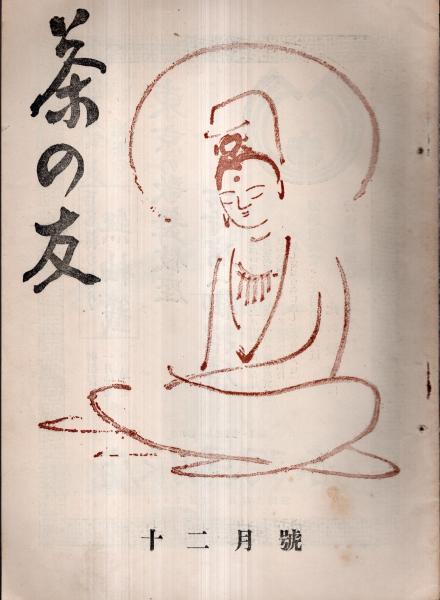 茶の友
十二月號